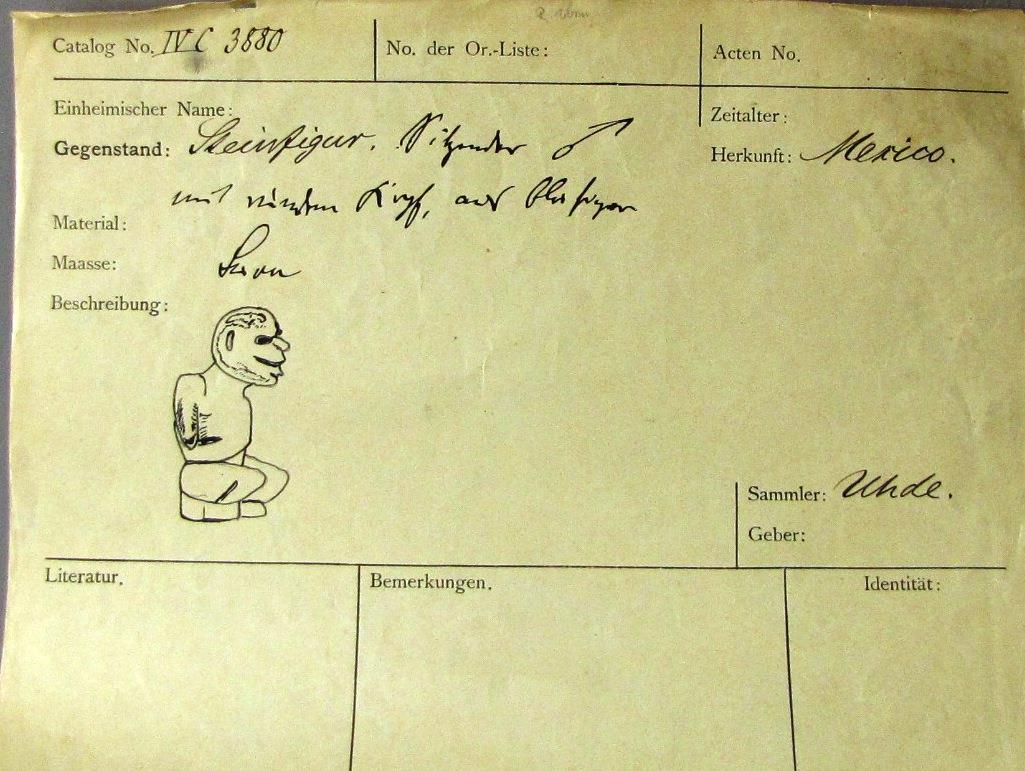 Catalog No. IV C 3880
No. der Or.-Liste:
Acten No.
Einheimischer Name:
Zeitalter:
Gegenstand: Steinfigur. Sitzender ♂
Herkunft: Mexico.
mit rundem Kopf, aus blasiger
Material:
Maasse: Lava
Beschreibung:
Sammler: Uhde.
Geber:
Literatur.
Bemerkungen.
Identität: